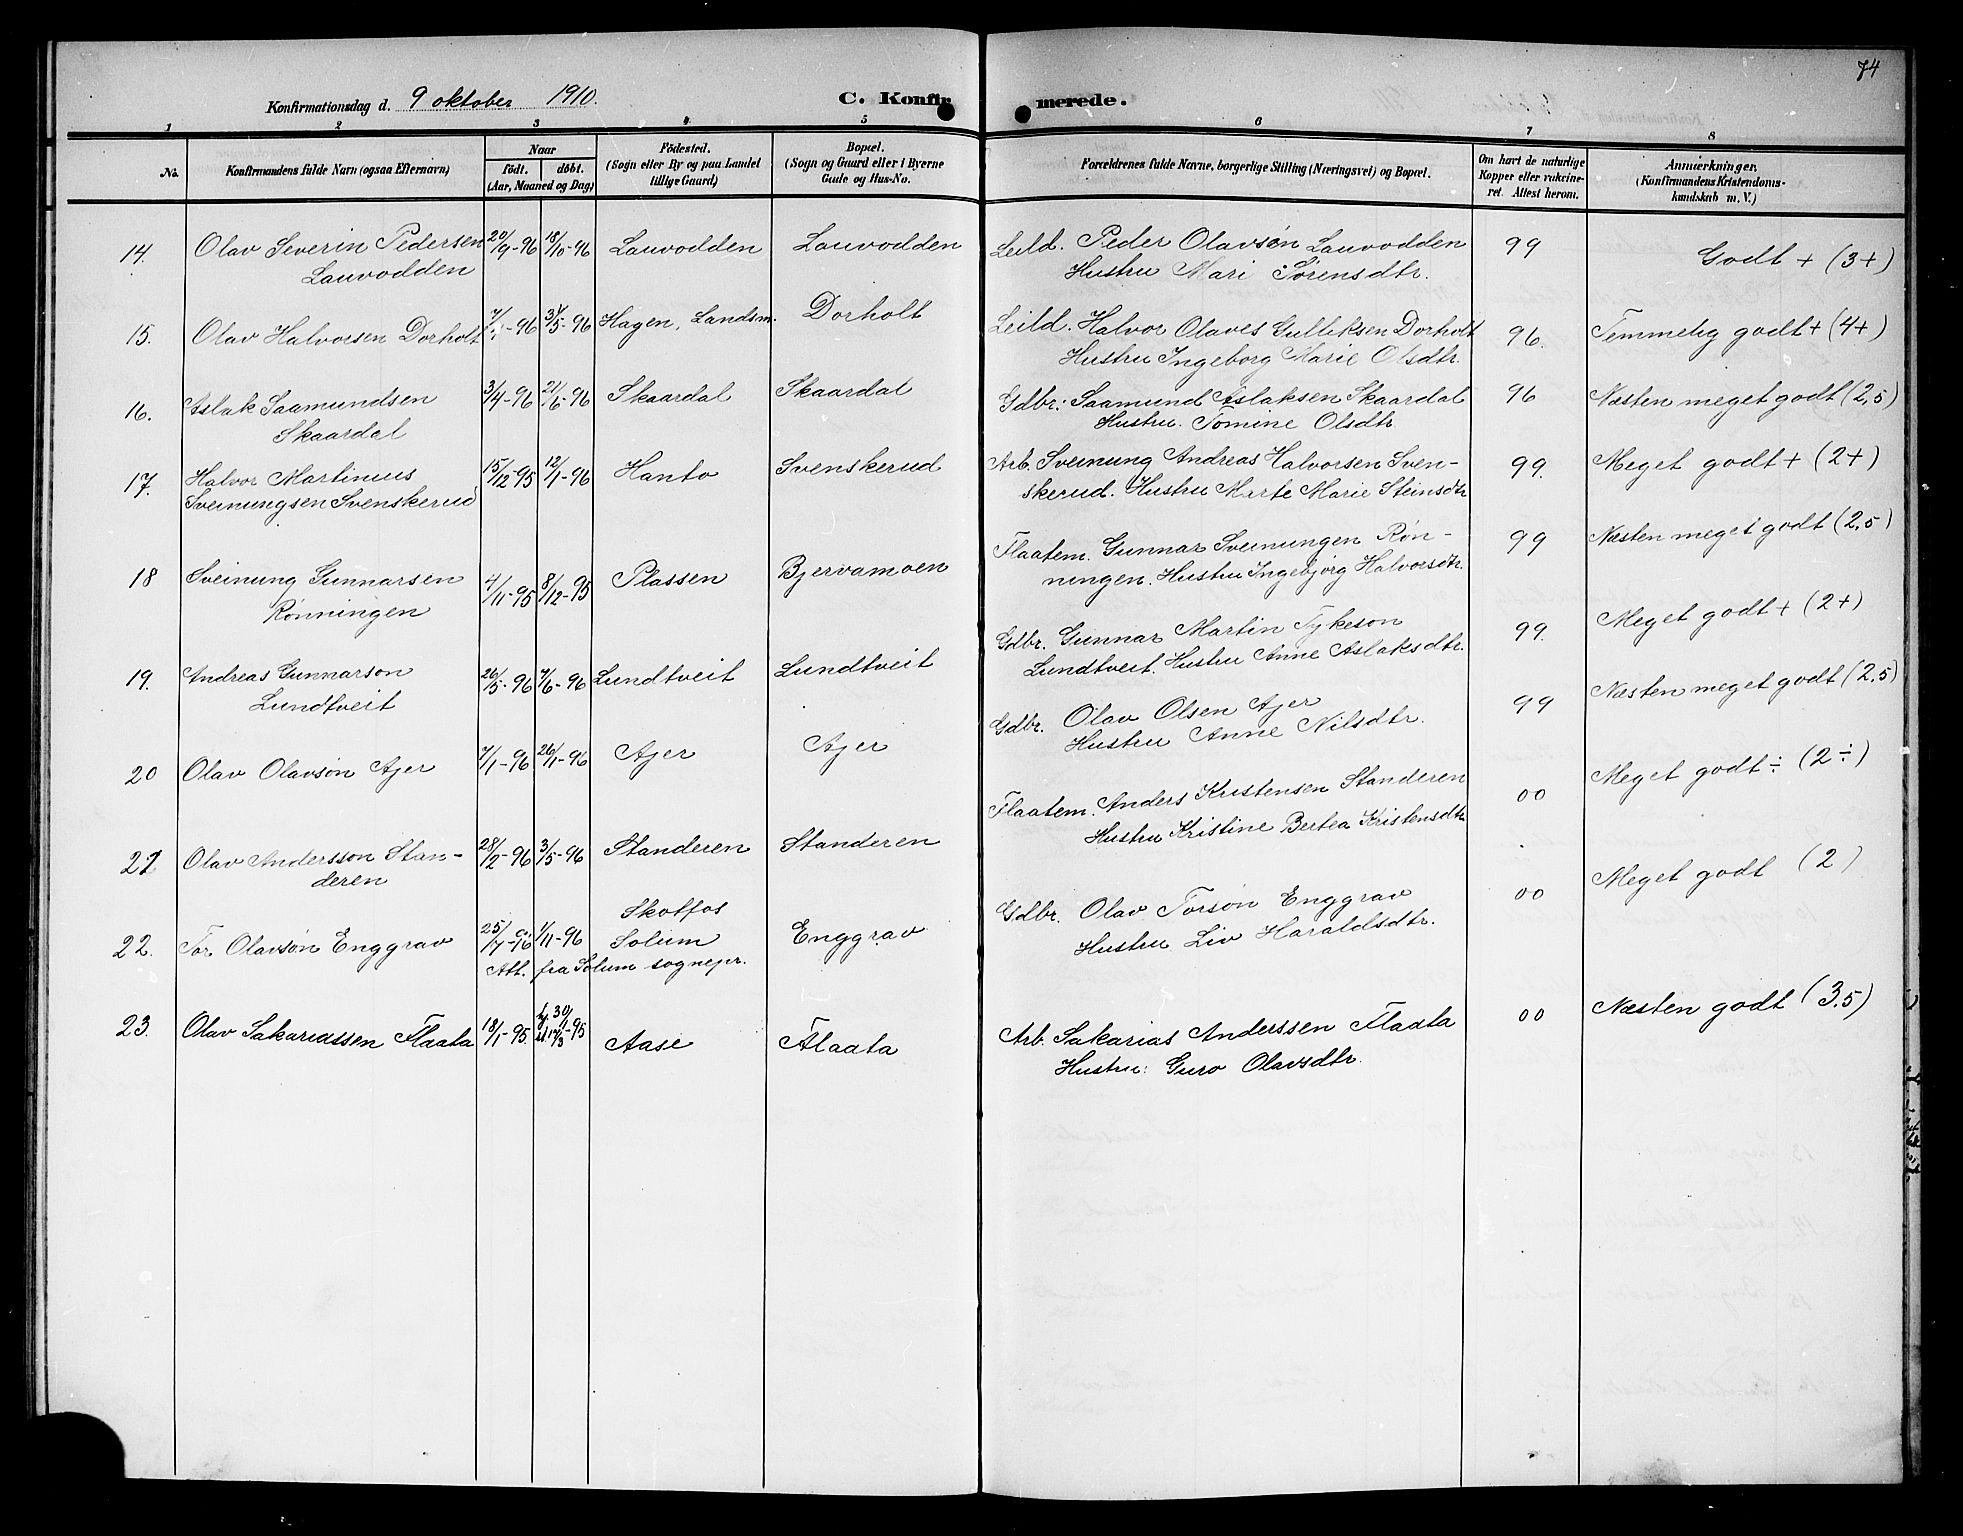 74
Konfirmationsdag d. 9 oktober 1910. C. Konfir merede.
1 2 3 4 5 6 7 8
No. Konfirmandens fulde Navn (ogsaa Efternavn) Naar födt. döbt. (Aar, Maaned og Dag) Födested. (Sogn eller By og paa Landet tillige Gaard) Bopæl. (Sogn og Gaard eller i Byerne Gade og Hus-No. Forældrenes fulde Navne, borgerlige Stilling (Næringsvei) og Bopæl. Om havt de naturlige Kopper eller vakcineret. Attest herom. Anmærkninger. (Konfirmandens Kristendomskundskab m. V.)
14. Olav Severin Pedersen 20/9-96 18/10-96 Lauvodden Lauvodden Leild. Peder Olavsön Lauvodden 99 Godt + (3+)
Lauvodden Hustru Mari Sörensdtr.
15. Olav Halvorsen Dorholt -96 31/5-96 Hagen, Landsm. Dorholt Leild. Halvor Olaves Gulliksen Dorholt 96. Temmelig godt + (4+)
Hustru Ingeborg Marie Olsdtr.
16. Aslak Saamundsen 3/4-96 21/6-96 Skaardal Skaardal Gdbr. Saamund Aslaksen Skaardal 96 Næsten meget godt (2,5)
Skaardal Hustru. Tomine Olsdtr
17. Halvor Martinius 15/12-95 12/1-96 Hanto Svenskerud Arb. Sveinung Andreas Halvorsen Sven- 99. Meget godt + (2+)
Sveinungsen Svenskerud skerud. Hustru Marte Marie Steinsdtr
18 Sveinung Gunnarsen 4/11-95 8/12-95 Plassen Bjervamoen Flaatem. Gunnar Sveinungen Røn- 99 Næsten meget godt (2,5)
Rønningen ningen. Hustru Ingebjörg Halvorsdtr.
19. Andreas Gunnarson 26/5-96 7/6-96 Lundtveit Lundtveit Gdbr. Gunnar Martin Tykeson 99. Meget godt + (2+)
Lundtveit Lundtveit. Hustru Anne Aslaksdtr.
20 Olav Olavsön Ajer 7/1-96 26/1-96 Ajer Ajer Gdbr. Olav Olsen Ajer 99 Næsten meget godt (2,5)
Hustru Anne Nilsdtr.
21 Olav Andersson Stan- 28/2-96 3/5-96 Standeren Standeren Flaatem. Anders Kristensen Standeren 00 Meget godt ÷ (2÷)
deren Hustru Kristine Bertea Kristensdtr
22. Tor Olavsön Enggrav 25/7-96 1/11-96 Skotfos Solum Enggrav Gdbr. Olav Torsön Enggrav 00 Meget godt (2)
Att. fra Solum sognepr. Hustru Liv Haraldsdtr.
23. Olav Sakariassen Flaata 18/1-95. 30/ 17/3-95 Aase Flaata Arb. Sakarias Anderssen Flaata 00 Næsten godt (3.5)
Hustru: Guro Olavsdtr.